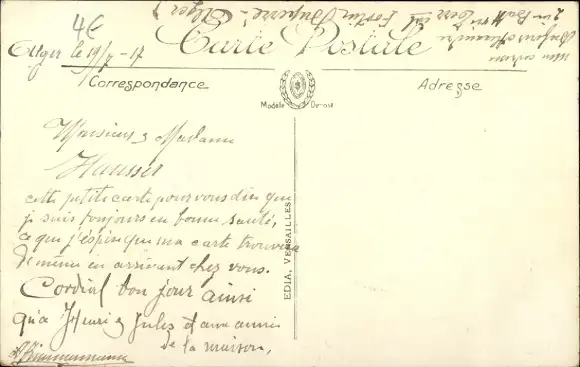 4€
Alger le 19/7-17
Carte Postale
Correspondance
Adresse
Modèle Déposé
Monsieur & Madame
Hausser
cette petite carte pour vous dire que
je suis toujours en bonne santé,
ce que j'espère que ma carte trouvera
de même en arrivant chez vous.
Cordial bon jour ainsi
qu'a Henri & Jules et aux amis
de la maison,
EDIA, VERSAILLES
Mon adresse
Alger